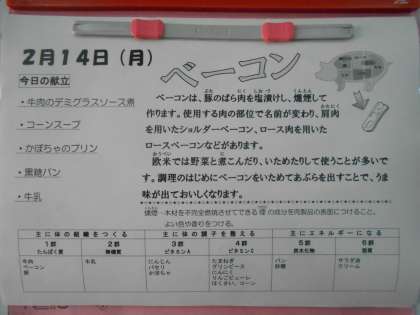 2月14日(月)
ベーコン
今日の献立
・牛肉のデミグラスソース煮
・コーンスープ
・かぼちゃのプリン
・黒糖パン
・牛乳
ベーコンは、豚のばら肉を塩漬けし、燻煙して
作ります。使用する肉の部位で名前が変わり、肩肉
を用いたショルダーベーコン、ロース肉を用いた
ロースベーコンなどがあります。
欧米では野菜と煮こんだり、いためたりして使うことが多いで
す。調理のはじめにベーコンをいためてあぶらを出すことで、うま
味が出ておいしくなります。
燻煙…木材を不完全燃焼させてできる煙の成分を肉製品の表面につけること。
よい色や香りをつける。
主に体の組織をつくる 主に体の調子を整える 主にエネルギーになる
1群 2群 3群 4群 5群 6群
たんぱく質 無機質 ビタミンA ビタミンC 炭水化物 脂質
牛肉 牛乳 にんじん たまねぎ パン サラダ油
ベーコン パセリ グリンピース 砂糖 クリーム
かぼちゃ にんにく
りんごピューレ